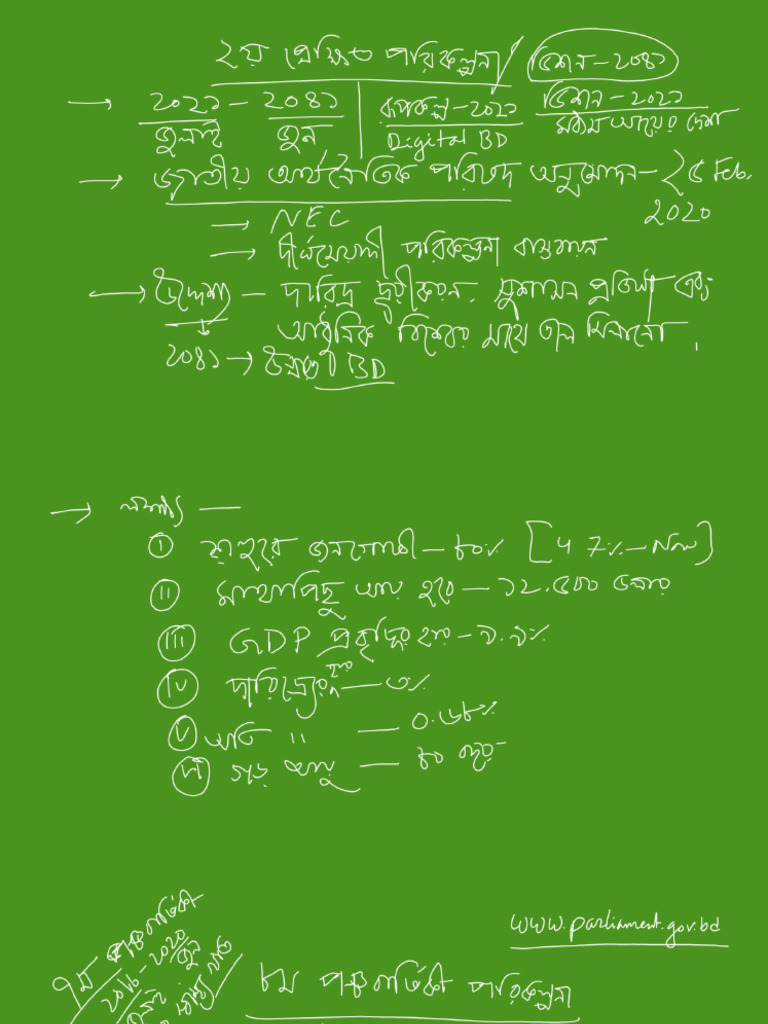 ২য় প্রেক্ষিত পরিকল্পনা / ভিশন - ২০৪১
→ ২০২১ - ২০৪১ | রূপকল্প - ২০২১ ভিশন - ২০২১
জুলাই জুন | Digital BD মধ্যম আয়ের দেশ
→ জাতীয় অর্থনৈতিক পরিষদ অনুমোদন - ২৫ Feb. 2020
→ NEC
→ দীর্ঘমেয়াদী পরিকল্পনা বাস্তবায়ন
→ উদ্দেশ্য - দারিদ্র দূরীকরন, সুশাসন প্রতিষ্ঠা এবং
আধুনিক বিশ্বের সাথে তাল মিলানো ,
২০৪১ → উন্নত BD
→ লক্ষ্য —
(i) শহুরে জনগোষ্ঠী - ৮০% [47% - Now]
(ii) মাথাপিছু আয় হবে - ১২.৫০০ ডলার
(iii) GDP প্রবৃদ্ধির হার - ৯.৯%
(iv) দারিদ্র্যের হার — ৩%
(v) অতি " — ০.৬৮%
(vi) গড় আয়ু — ৮০ বছর
www.parliament.gov.bd
৭ম পঞ্চবার্ষিকী
২০১৬ - ২০২০
জুন
৮ম পঞ্চবার্ষিকী পরিকল্পনা